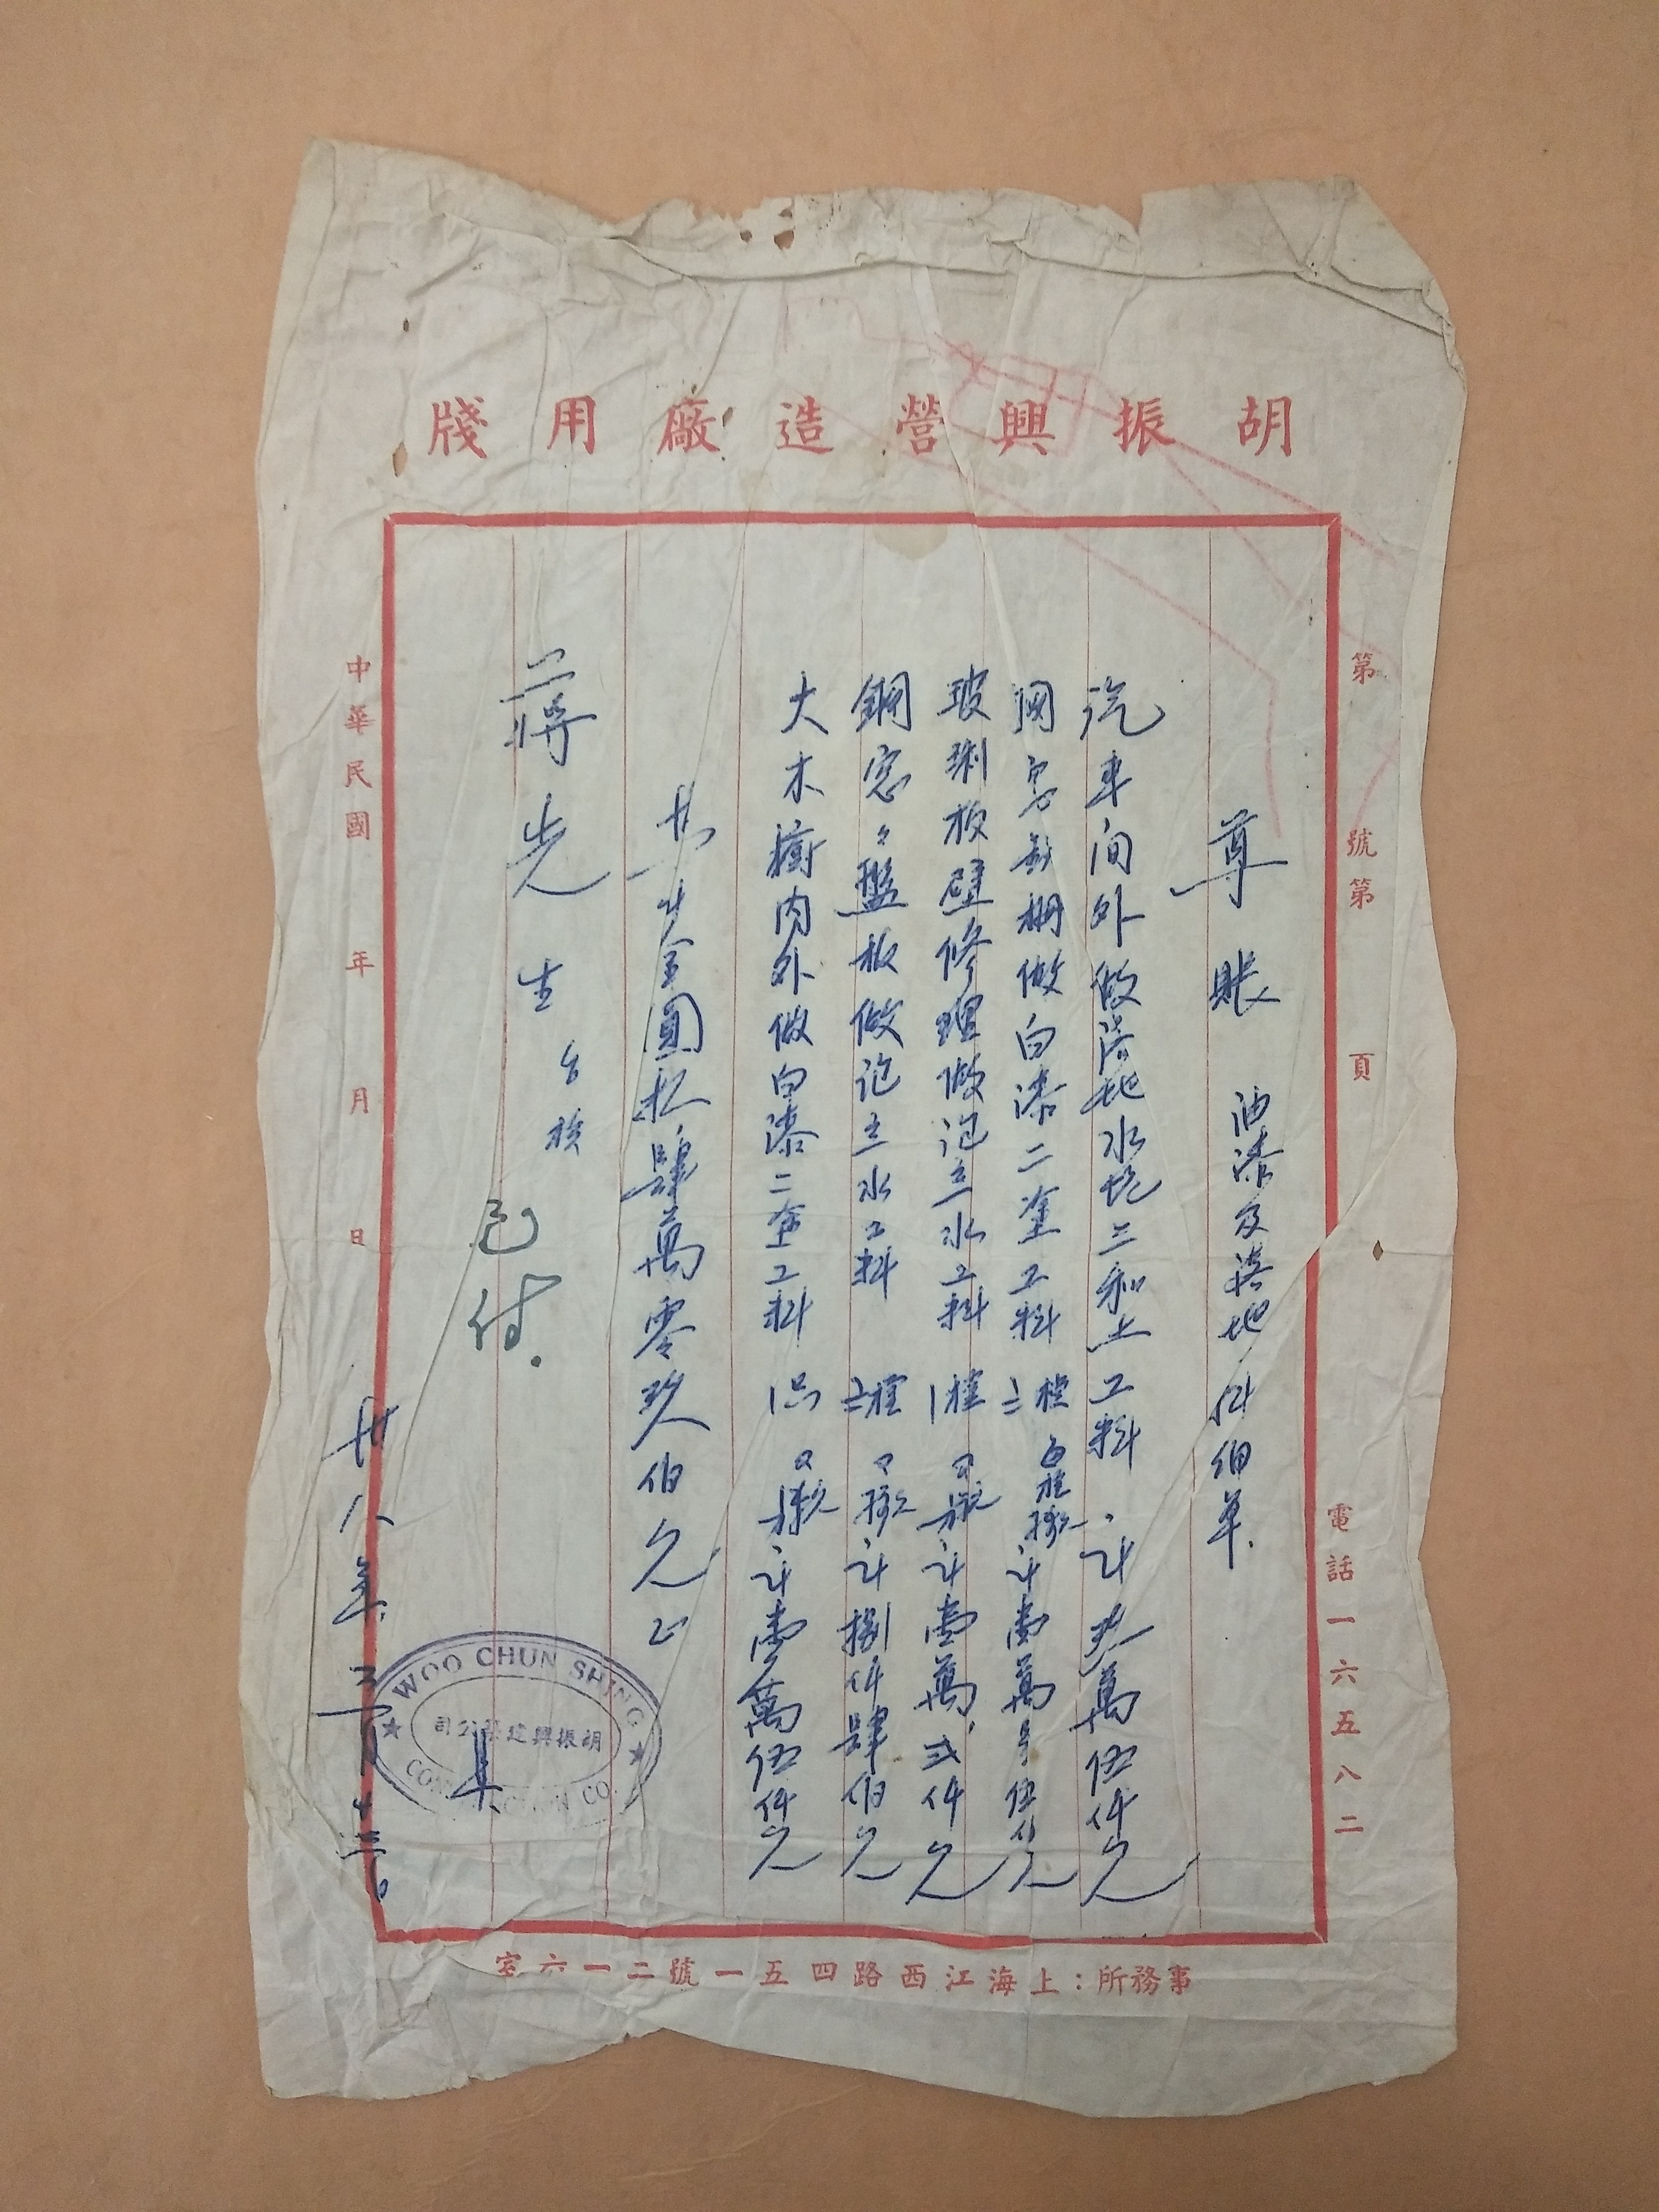 胡振興營造廠用牋
第 號第 頁
電話一六五八二
尊賬 油漆及落地
汽車间外做落地水坑三和土工料 計 萬伍仟元
做白漆二塗工料 二樘 計壹萬 元
玻琍板壁修理做泡立水工料 1樘 計壹萬弍仟元
鋼窓々盤板做泡立水工料 二樘 計捌仟肆伯元
大木橱内外做白漆二塗工料 1只 計壹萬伍仟元
共計金圓 肆萬零玖伯元正
蔣先生 台核
已付.
中華民國 年 月 日
卅八年 三月 十三日
WOO CHUN SHING
胡振興建築公司
CONSTRUCTION CO.
具
事務所：上海江西路四五一號二一六室